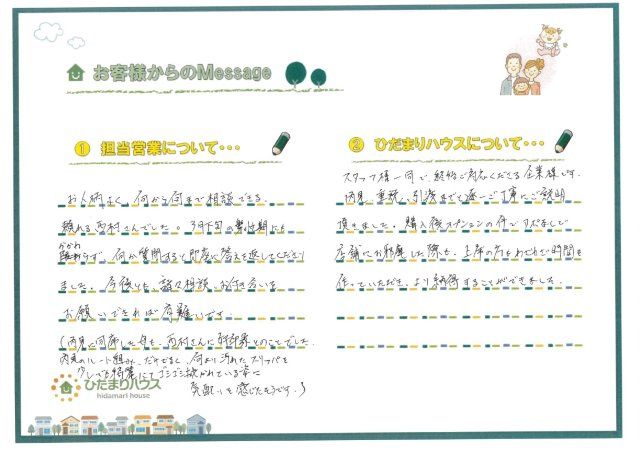 お客様からのMessage
① 担当営業について・・・
お人柄よく、何から何まで相談できる、
頼れる西村さんでした。3月下旬の繁忙期にも
かかわらず、何か質問すると即座に答えを返してくださり
ました。今後とも、諸々相談、お付き合いを
お願いできれば有難いです。
（内見に同席した母も、西村さんに好印象とのことでした。
内見のルート組み、だけでなく、何より汚れたスリッパを
少しでも綺麗にてゴシゴシ拭かれている姿に
気配りを感じたそうです。）
② ひだまりハウスについて・・・
スタッフ様一同で、終始ご対応くださる企業様です。
内見、重説、引渡までと逐一ご丁寧にご説明
頂きました。購入後オプションの件でアポなしで
店舗にお邪魔した際も、上席の方もわざわざ時間を
作っていただき、より納得することができました。
ひだまりハウス
hidamari house